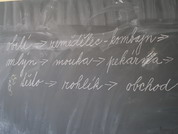 obilí -> zemědělec - kombajn ->
mlýn -> mouka -> pekárna ->
těsto -> rohlík -> obchod